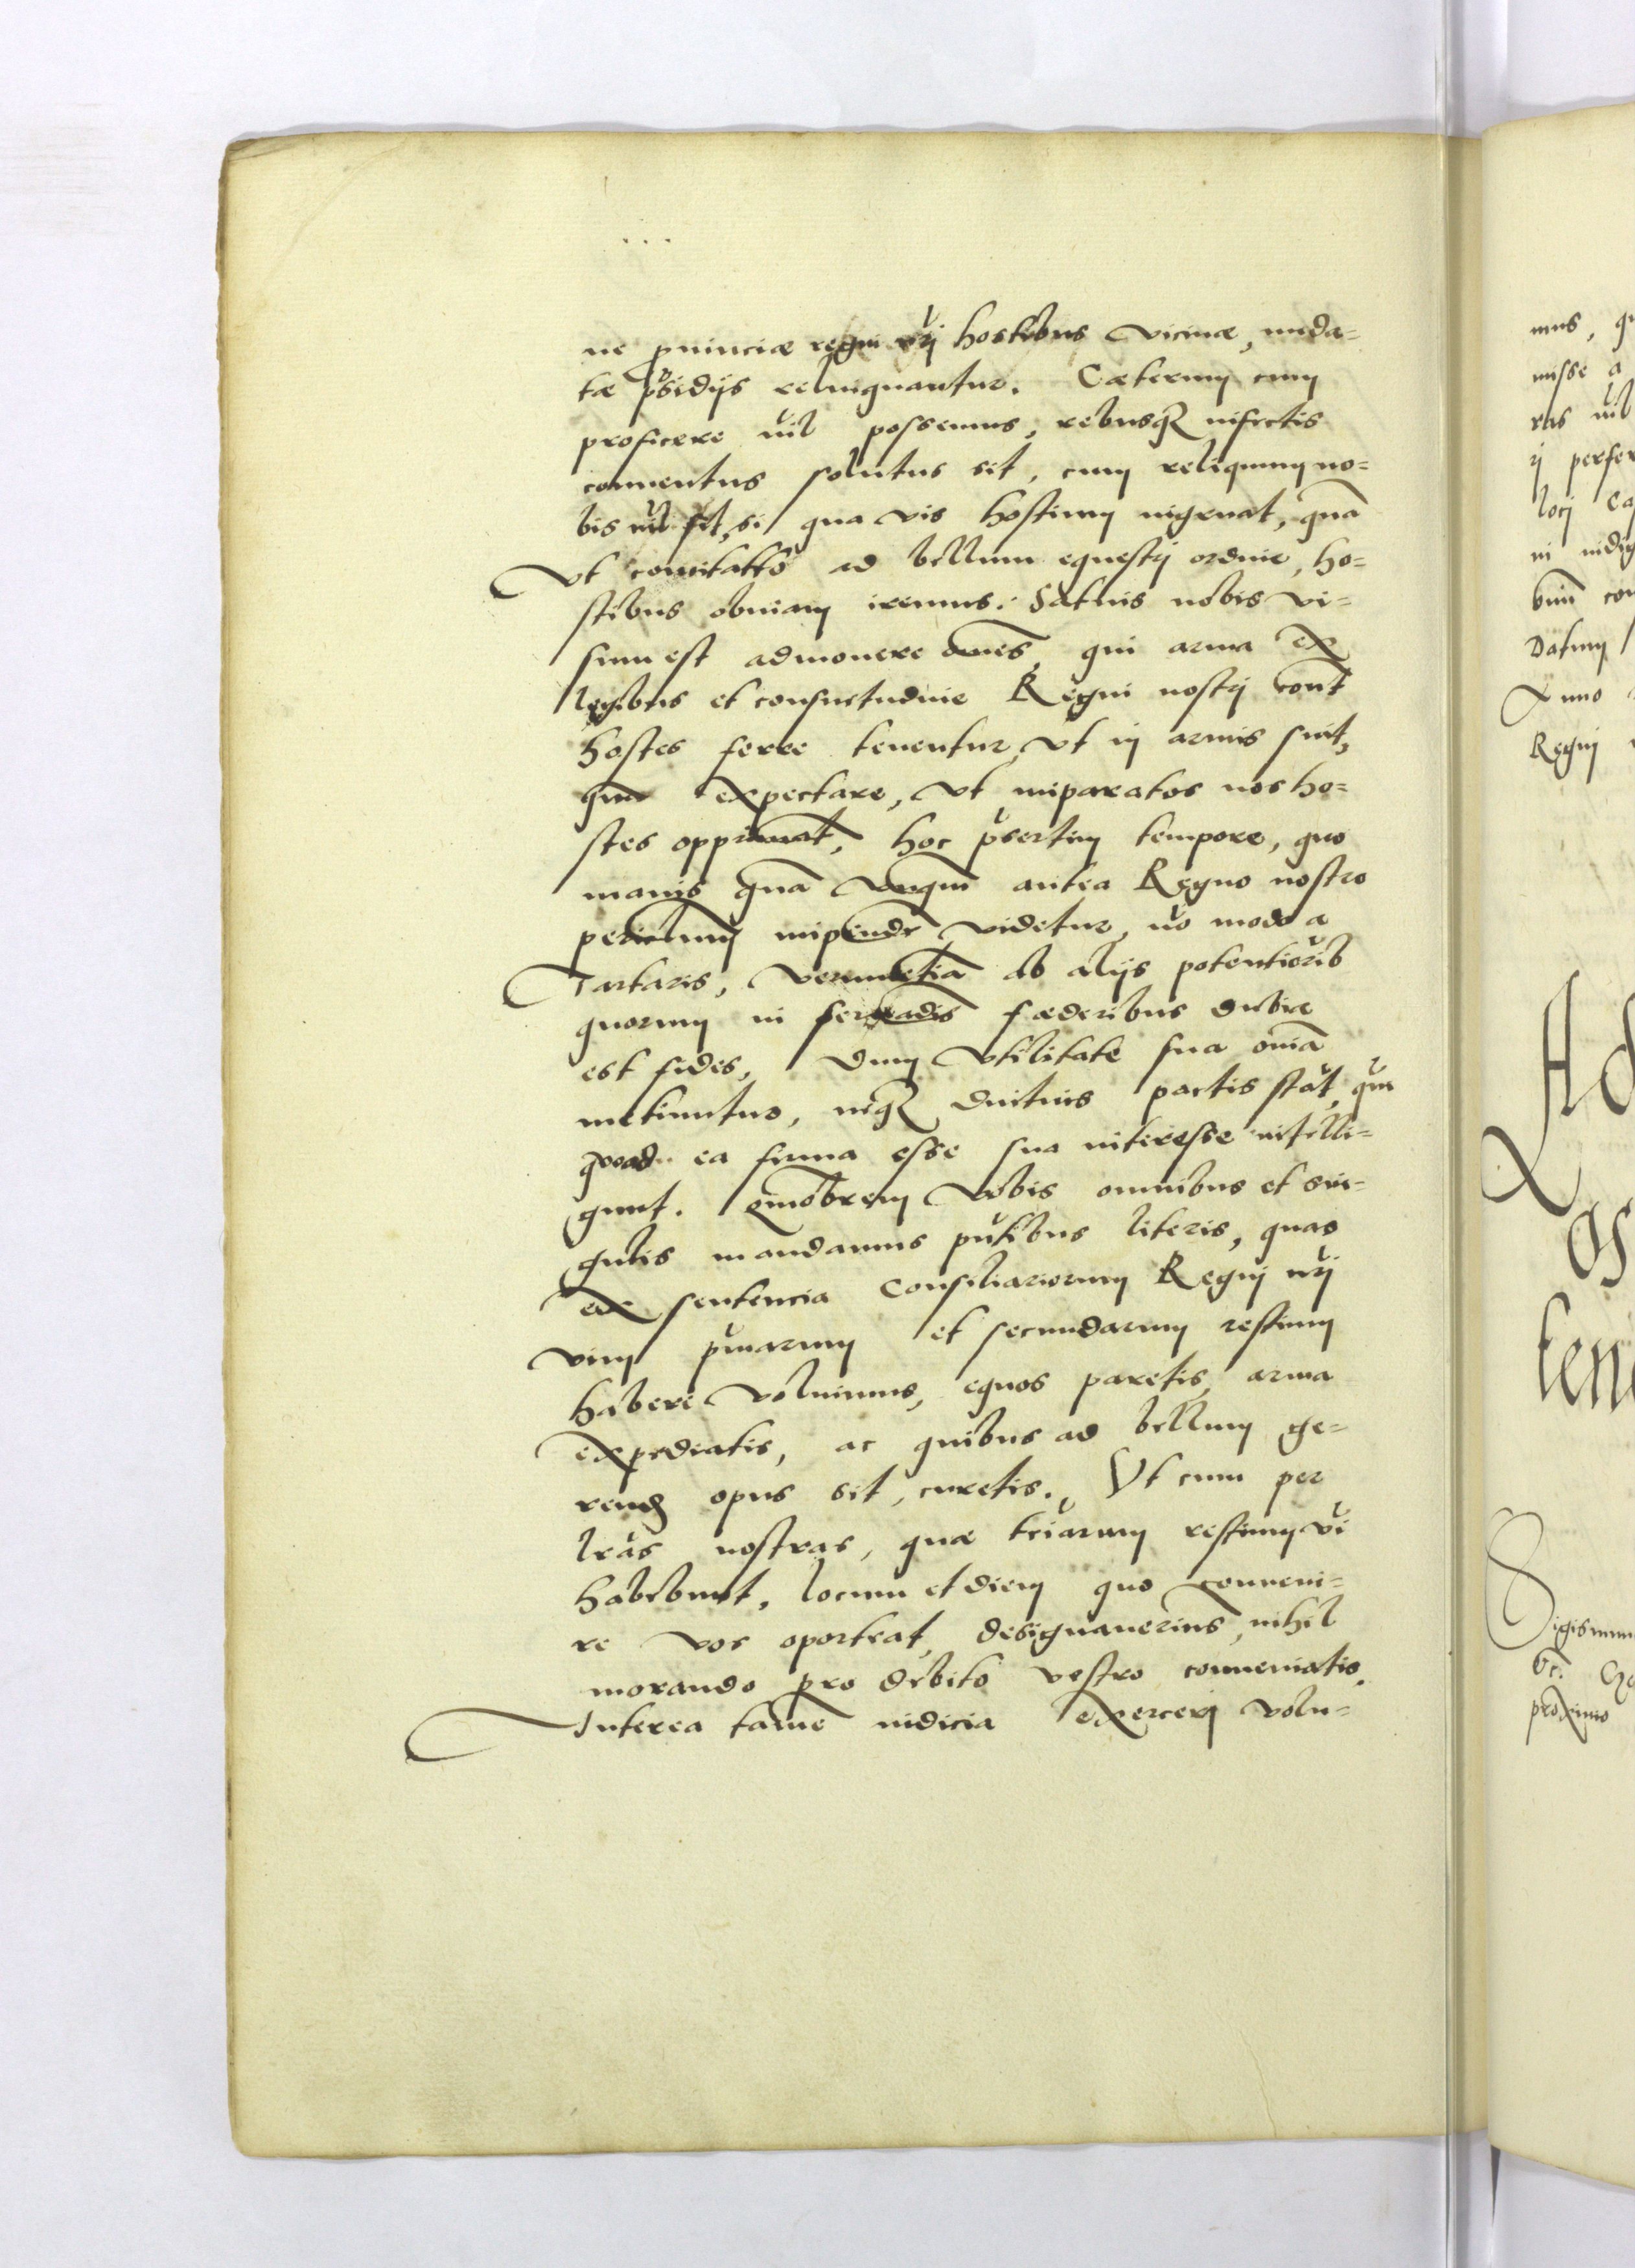 ne puinciæ regni nrj hostibus vicinæ, nuda=
tæ psidijs relinquantur. Cæterum cum
proficere nil possemus, rebusq infectis
conuentus solutus sit, cum reliquum no=
bis nil sit, si qua vis hostium ingruat, qua
vt comitatto ad bellum equestrj ordine, ho=
stibus obuiam iremus: Satius nobis vi=
sum est admonere omes, qui arma ex
legibus et consuetudine Regni nostrj cont
hostes ferre tenentur, vt in armis sint,
qm expectare, vt imparatos nos ho=
stes opprimat, hoc psertim tempore, quo
maius qua vnqm antea Regno nostro
periclum impendr videtur, no modo a
Tartaris, verumetia ab alijs potentiorib
quorum in seruadis fæderibus dubia
est fides, dum vtilitate sua omia
metiuntur, neq diutius pactis stat, qm
quoad ea firma esse sua interesse intelli=
gunt. Qmobrem vobis omnibus et sin=
gulis mandamus pntibus literis, quas
ex sentencia Consiliariorum Regnj nrj
vim pmarum et secundarum restium
habere volumus, equos paretis, arma
expediatis, ac quibus ad bellum ge=
rend opus sit, curetis. Vt cum per
lras nostras, quæ triarum restium vi
habebunt, locum et diem quo conueni=
re vos oporteat, designauerims, nihil
morando pro debito vestro conueniatis.
Interea tame iudicia exercerj volu=
mus, q
misse a
nil
rj perfer
locj
in
con
Datum
Anno
Regnj
Ad
os
ten
Sigismun
proximo